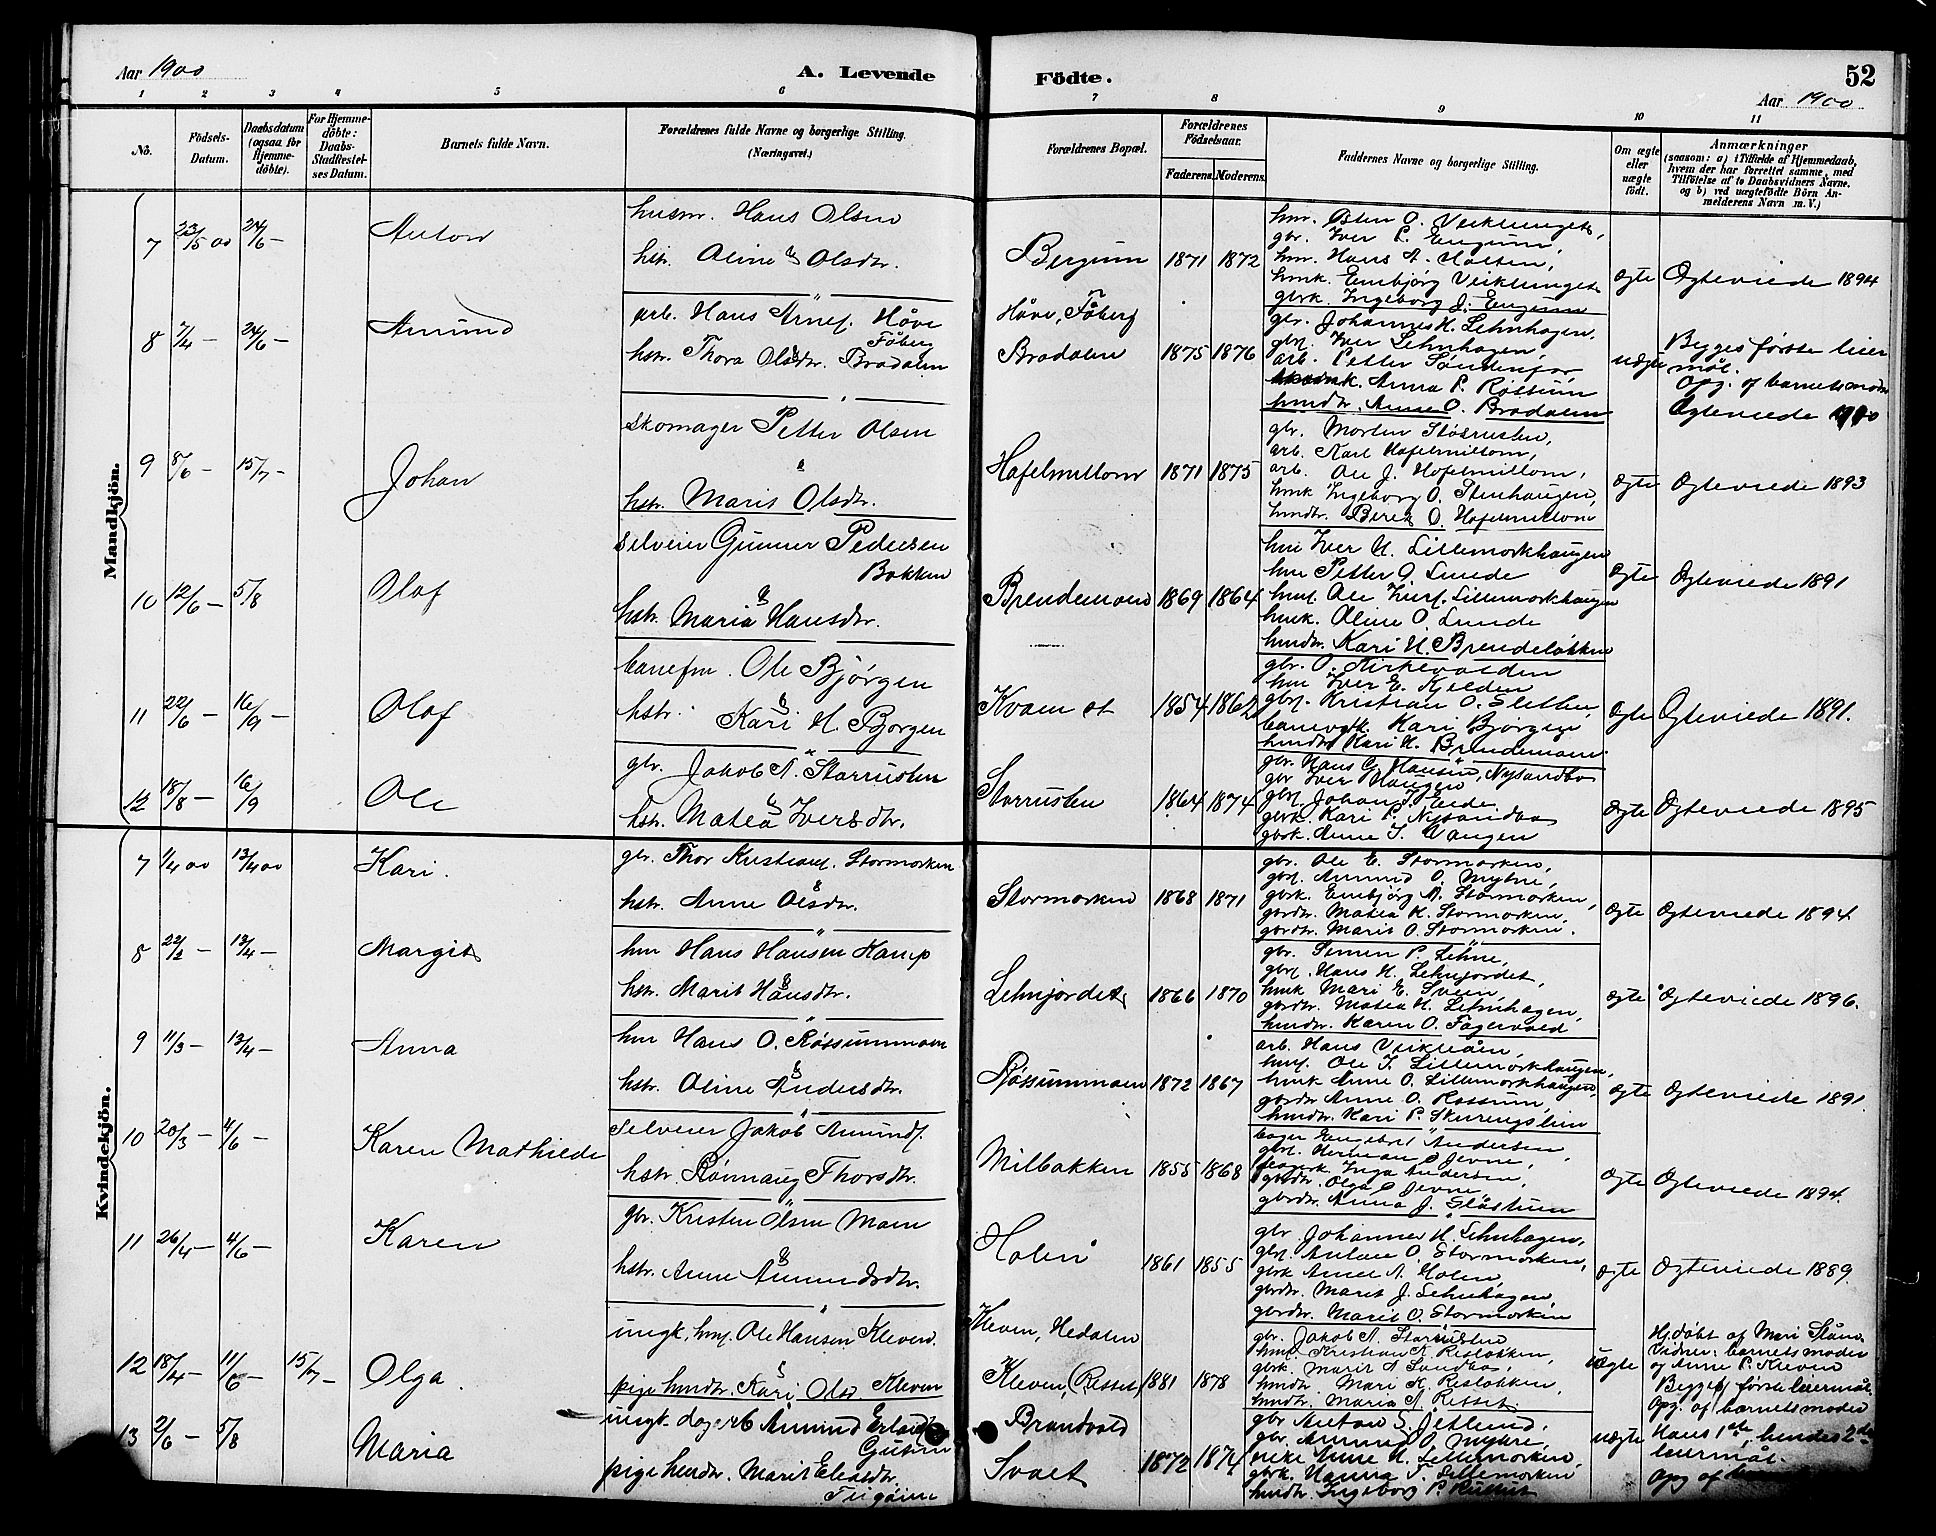 Aar 1900
A. Levende
Födte.
52
Aar 1900
1 2 3 4 5 6 7 8 9 10 11
No.
Födsels-Datum.
Daabsdatum (ogsaa for Hjemme-döbte).
For Hjemme-döbte: Daabs-Stadfæstel-ses Datum.
Barnets fulde Navn.
Forældrenes fulde Navne og borgerlige Stilling. (Næringsvei.)
Forældrenes Bopæl.
Forældrenes Födselsaar.
Faderens. Moderens.
Faddernes Navne og borgerlige Stilling.
Om ægte eller uægte födt.
Anmærkninger
(saasom: a) i Tilfælde af Hjemmedaab, hvem der har forrettet samme, med Tilföielse af to Daabsvidners Navne, og b) ved uægtefödte Börn An-melderens Navn m. V.)
Mandkjön.
7 23/5 00 24/6 – Anton
husm. Hans Olsen
hstr. Oline Olsdtr.
Bergum 1871 1872
gbr. Iver P. Engum
hm. Hans A. Holten,
hmk. Embjørg
gbrk. Ingeborg J. Engum
ægte Ægteviede 1894
8 7/4 – 24/6 – Amund
arb. Hans Arnes. Håve
Fåberg
hstr. Thora Olsdtr. Bradalen
Håve, Fåberg
Bradalen 1875 1876
gbr. Johannes H. Lehnhagen,
gbs. Iver Lehnhagen,
arb. Petter
Anna P. Røssum
hmdtr. Anne O. Bradalen
uægte Begges første leier
mål.
Opg. af barnets moder
Ægteviede 1900
9 8/6 – 15/7 – Johan
Skomager Petter Olsen
hstr. Marit Olsdtr.
1871 1875
gbr. Morten
arb. Karl
arb. Ole J.
hmk Ingeborg O. Stenhaugen,
hmdtr. Berit O.
ægte Ægteviede 1893
10 12/6 – 5/8 Olaf
Selveier Gunner Pedersen
Bakken
hstr. Maria Hansdtr.
Brendemoen 1869 1864
hm Iver H. Lillemorkhaugen
hm Petter O. Lunde
hms. Ole Ivers. Lillemorkhaugen
hmk. Oline O. Lunde
hmdtr. Kari H. Brendeløkken
ægte Ægteviede 1891
11 22/6 – 16/9 – Olaf
banefm. Ole Bjørgen
hstr. Kari H. Bjørgen
Kvam st 1854 1862
gbr. O. Kirkevolden
hm Iver E. Kjelden
gbs. Kristian O. Sletten
banevgtk. Kari Bjørgen
hmdtr. Kari H. Brendemoen
ægte Ægteviede 1891.
12 18/8 – 16/9 Ole
gbr. Jakob A. Storrusten
hstr. Matea Iversdtr.
Storrusten 1864 1874
gbr. Hans G. Hansen, Nysandbo
gbr Iver
gbs. Johan
gbrk. Kari P. Nysandbo
gbrk. Anne I. Vangen
ægte Ægteviede 1895
Kvindekjön.
7 1/4 00 13/4 00 Kari.
gbr. Thor Kristians. Stormorken
hstr. Anne Olsdtr.
Stormorken 1868 1871
gbr. Ole E. Stormorken,
gbs. Amund O. Myhre,
gbrk. Embjørg A. Stormorken,
gbrdtr. Matea K. Stormorken,
gbrdtr. Marit O. Stormorken.
ægte Ægteviede 1894.
8 22/2 – 13/4 – Margit
hm Hans Hansen Kamp
hstr. Marit Hansdtr.
Lehnjordet 1866 1870
gbr. Simen P. Lehne,
gbs. Hans H. Lehnjordet,
hmk Mari E. Svein,
gbrdtr. Matea H. Lehnhagen,
hmdtr. Karen O. Fagervold
ægte Ægteviede 1896.
9 11/3 – 13/4 – Anna
hm Hans O. Røssummoen
hstr. Oline Andersdtr.
Røssummoen 1872 1867
arb. Hans
hms. Ole I. Lillemorkhaugen,
hmk Anne O. Lillemorkhaugen,
gbrdtr Anne O. Røssum,
hmdtr. Kari P. Skurengslien
ægte Ægteviede 1891
10 20/3 – 4/6 – Karen Mathilde
Selveier Jakob Amunds.
hstr. Rønnaug Thorsdtr.
Milbakken 1855 1868
bager Engebret Andersen
gbs. Herman O Jevne,
bagerk. Inga Andersen,
gbrdtr. Olga O Jevne
gbrdtr. Anna J. Sløstuen
ægte Ægteviede 1894.
11 26/4 – 4/6 – Karen
gbr. Kristen Olsen Moen
hstr. Anne Amundsdtr.
Holen 1861 1855
gbr Johannes H. Lehnhagen,
gbs. Anton O. Stormorken,
gbrk A. Holen,
gbrdtr. Marit J. Lehnhagen,
gbrdtr. Marit O. Stormorken
ægte Ægteviede 1889.
12 18/4 – 11/6 – 15/7 – Olga.
ungk. hms. Ole Hansen Kleven.
pige hmdtr. Kari Olsd Kleven
Kleven, Hedalen
Kleven (Ressets) 1881 1878
gbr. Jakob A. Storrusten
hms. Kristian K. Resløkken,
gbrk. Marit A Sandbo,
hmdtr. Mari K. Resløkken,
hmdtr. Maria A. Resset
uægte Hj.døbt af Mari
Vidner: barnets moder
og Anne P. Kleven
Begges første leiermål.
Opg. af barnets moder
13 2/6 – 5/8 Maria
ungk. dagarb Amund
pige hmdtr. Marit
Brandvold
1872 1874
gbr Anton S. Jetlund,
gbr. Amund O. Myhre,
pike Anne H. Lillemorken,
gbrk. Hanna T. Lillemorken
hmdtr. Ingeborg P.
uægte Hans 1ste, hendes 2det
leiermål.
Opg af